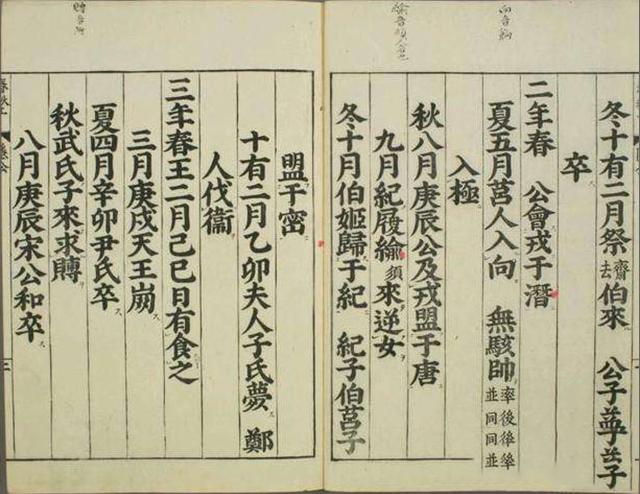 冬十有二月祭齋去伯來　公子益去子
卒
二年春　公會戎于潛
夏五月莒人入向　無駭帥率後俸䘹並同同並
入極
秋八月庚辰公及戎盟于唐
九月紀履緰須來逆女
冬十月伯姬歸于紀　紀子伯莒子
盟于密
十有二月乙卯夫人子氏薨　鄭
人伐衞
三年春王二月己巳日有食之
三月庚戌天王崩
夏四月辛卯尹氏卒
秋武氏子來求賻
八月庚辰宋公和卒
三